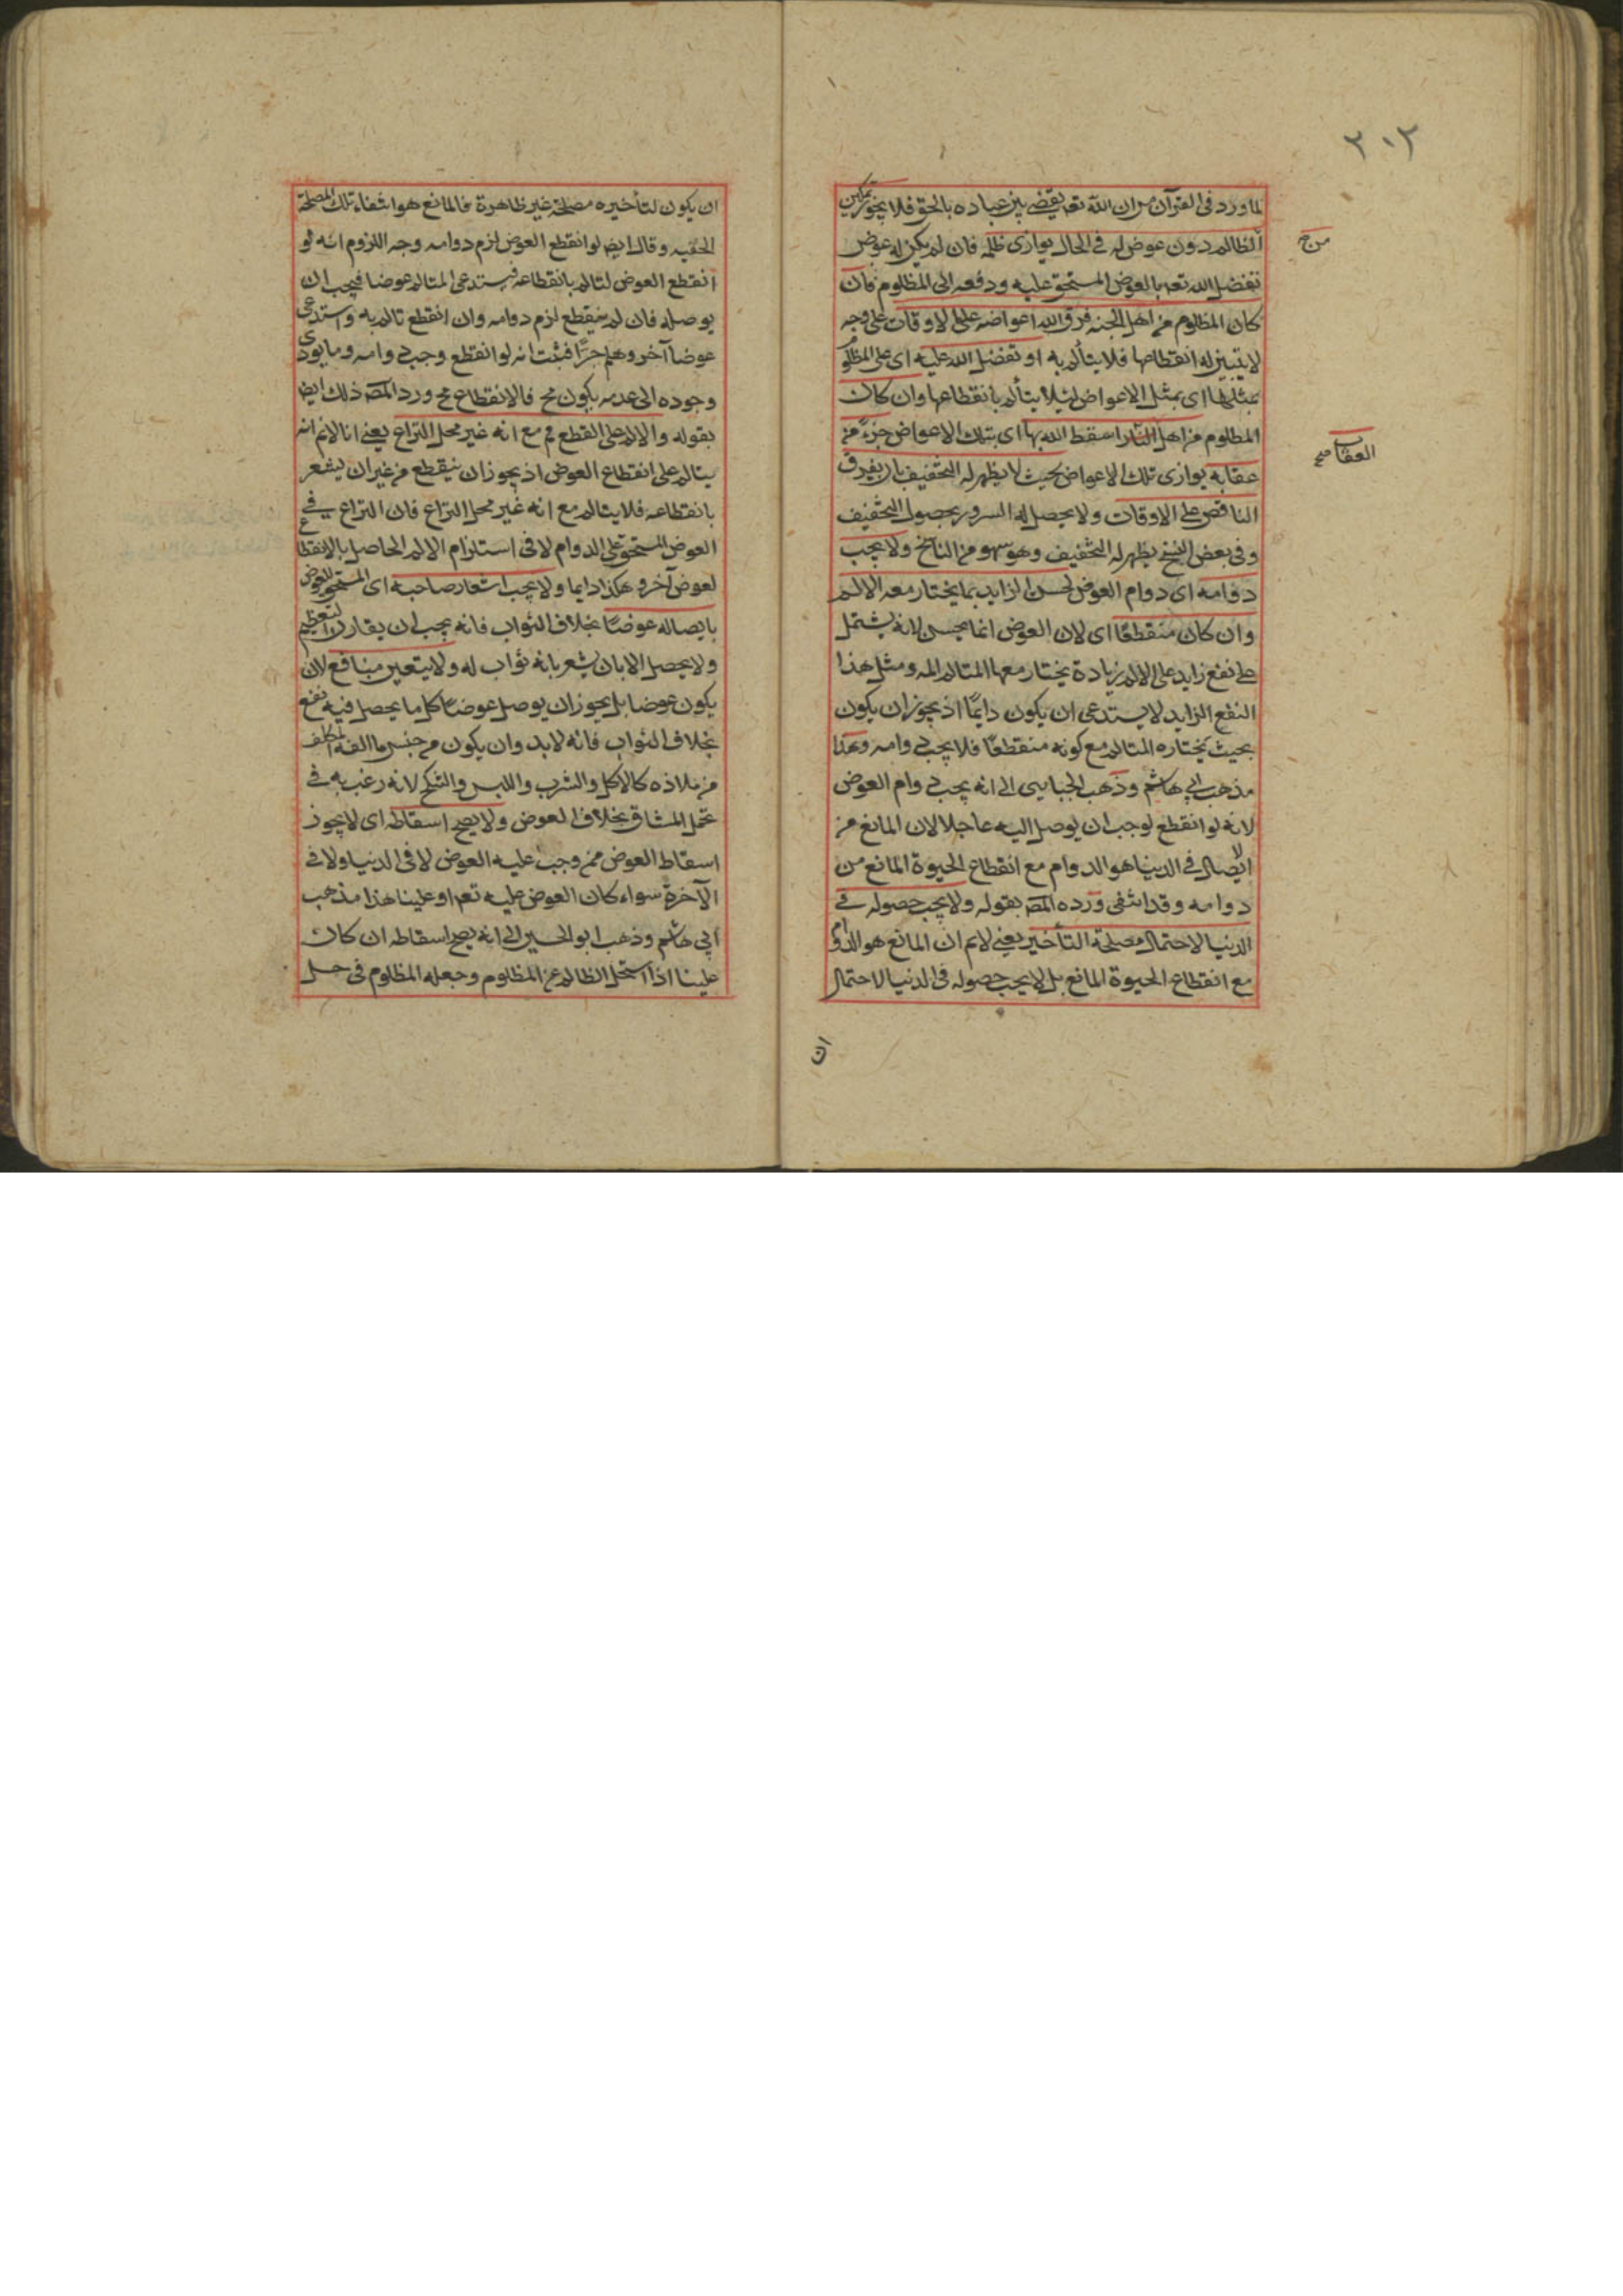 ٣٠٢
لما ورد فى القرآن من ان الله تعه يقضى بين عباده بالحق فلا يجوز تمكين
الظالم دون عوض له فى الحال يوازى ظلمه فان لم يكن له عوض
تفضل الله تعه بالعوض المستحق عليه ودفعه الى المظلوم فان
كان المظلوم من اهل الجنه فرق الله اعواضه على الاوقات على وجه
لا يتبين له انقطاعها فلا يتألم به او تفضل الله عليه اى على المظلوم
بمثلها اى بمثل الاعواض لئلا يتألم بانقطاعها وان كان
المظلوم من اهل النار اسقط الله بها اى بتلك الاعواض جزءً من
عقابه يوازى تلك الاعواض بحيث لا يظهر له التخفيف بان يفرق
الناقص على الاوقات ولا يحصل له السرور بحصول التخفيف
وفى بعض النسخ يظهر له التخفيف وهو سهو من الناسخ ولا يجب
دوامه اى دوام العوض لحسن الزايد بما يختار معه الالم
وان كان منقطعًا اى لان العوض انما يحسن لانه يشتمل
على نفع زايد على الالم زيادة يختار معها المتالم المه ومثل هذا
النفع الزايد لا يستدعى ان يكون دايمًا اذ يجوز ان يكون
بحيث يختاره المتالم مع كونه منقطعًا فلا يجب دوامه وهذا
مذهب ابى هاشم وذهب الجبايى الى انه يجب دوام العوض
لانه لو انقطع لوجب ان يوصل اليه عاجلا لان المانع من
الايصال فى الدنيا هو الدوام مع انقطاع الحيوة المانع من
دوامه وقد انتفى ورده المص بقوله ولا يجب حصوله فى
الدنيا لاحتمال مصلحة التأخير يعنى لا نم ان المانع هو الدوام
مع انقطاع الحيوة المانع بل لا يجب حصوله فى الدنيا لاحتمال
ان
العقاب صح
ان يكون لتأخيره مصلحة غير ظاهرة فالمانع هو انتفاء تلك المصلحة
الخفيه وقال ايض لو انقطع العوض لزم دوامه وجه اللزوم انه لو
انقطع العوض لتالم بانقطاعه فيستدعى المتالم عوضا فيجب ان
يوصله فان لم ينقطع لزم دوامه وان انقطع تالم به واستدعى
عوضا آخر وهلم جرًا فثبت انه لو انقطع وجب دوامه وما يودى
وجوده الى عدمه يكون مح فالانقطاع مح ورد المص ذلك ايض
بقوله والالم على القطع مم مع انه غير محل النزاع يعنى انا لا نم انه
يتالم على انقطاع العوض اذ يجوز ان ينقطع من غير ان يشعر
بانقطاعه فلا يتالم مع انه غير محل النزاع فان النزاع فى
العوض المستحق على الدوام لا فى استلزام الالم الحاصل بالانقطاع
لعوض آخر وهكذا دايما ولا يجب اشعار صاحبه اى المستحق للعوض
بايصاله عوضًا بخلاف الثواب فانه يجب ان يقارن التعظيم
ولا يحصل الا بان يشعر بانه ثواب له ولا يتعين منافع لان
يكون عوضا بل يجوز ان يوصل عوضًا كل ما يحصل فيه نفع
بخلاف الثواب فانه لا بد وان يكون من جنس ما الفه المكلف
من ملاذه كالاكل والشرب واللبس والنكح لانه رغب به فى
تحمل المشاق بخلاف العوض ولا يصح اسقاطه اى لا يجوز
اسقاط العوض ممن وجب عليه العوض لا فى الدنيا ولا فى
الآخرة سواء كان العوض عليه تعه او علينا هذا مذهب
ابى هاشم وذهب ابو الحسين الى انه يصح اسقاطه ان كان
علينا اذا استحل الظالم من المظلوم وجعله المظلوم فى حل